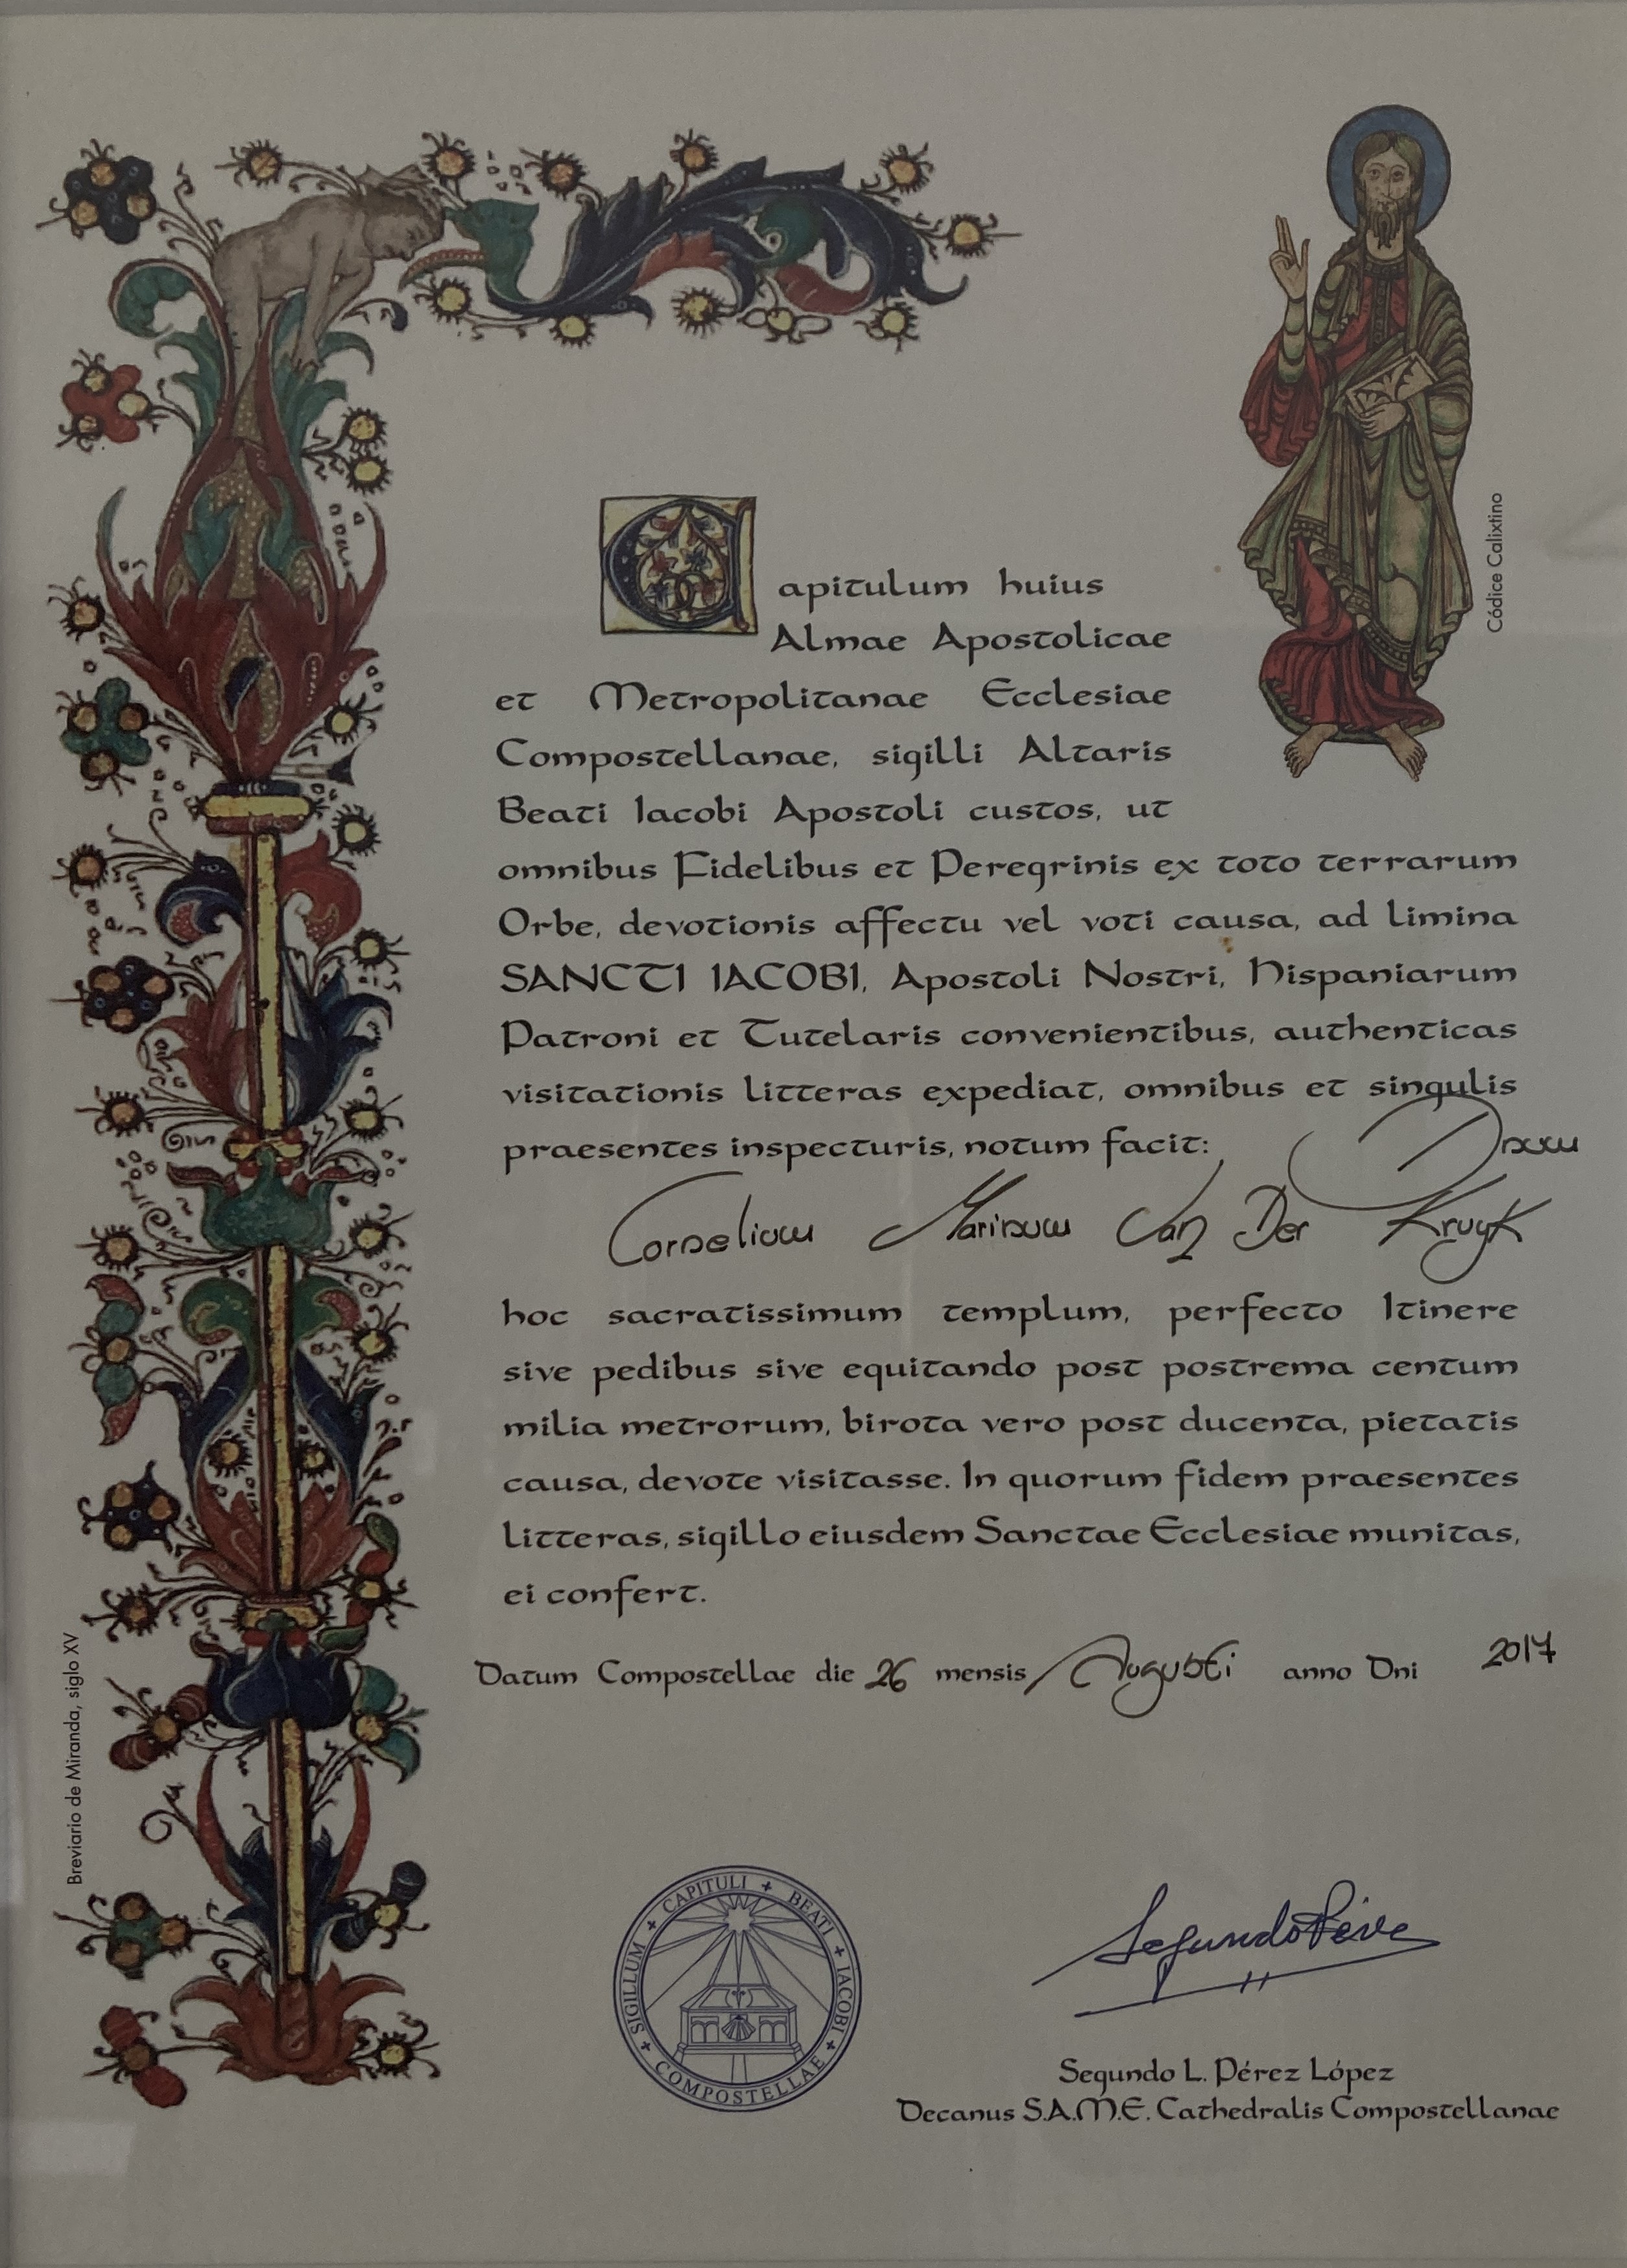 Capitulum huius
Almae Apostolicae
et Metropolitanae Ecclesiae
Compostellanae, sigilli Altaris
Beati Iacobi Apostoli custos, ut
omnibus Fidelibus et Peregrinis ex toto terrarum
Orbe, devotionis affectu vel voti causa, ad limina
SANCTI IACOBI, Apostoli Nostri, Hispaniarum
Patroni et Tutelaris convenientibus, authenticas
visitationis litteras expediat, omnibus et singulis
praesentes inspecturis, notum facit: Dnum
Cornelium Marinum Van Der Kruyk
hoc sacratissimum templum, perfecto Itinere
sive pedibus sive equitando post postrema centum
milia metrorum, birota vero post ducenta, pietatis
causa, devote visitasse. In quorum fidem praesentes
litteras, sigillo eiusdem Sanctae Ecclesiae munitas,
ei confert.
Datum Compostellae die 26 mensis Augusti anno Dni 2017
SIGILLUM + CAPITULI + BEATI + IACOBI + COMPOSTELLAE +
Segundo Pérez
Segundo L. Pérez López
Decanus S.A.M.E. Cathedralis Compostellanae
Códice Calixtino
Breviario de Miranda, siglo XV